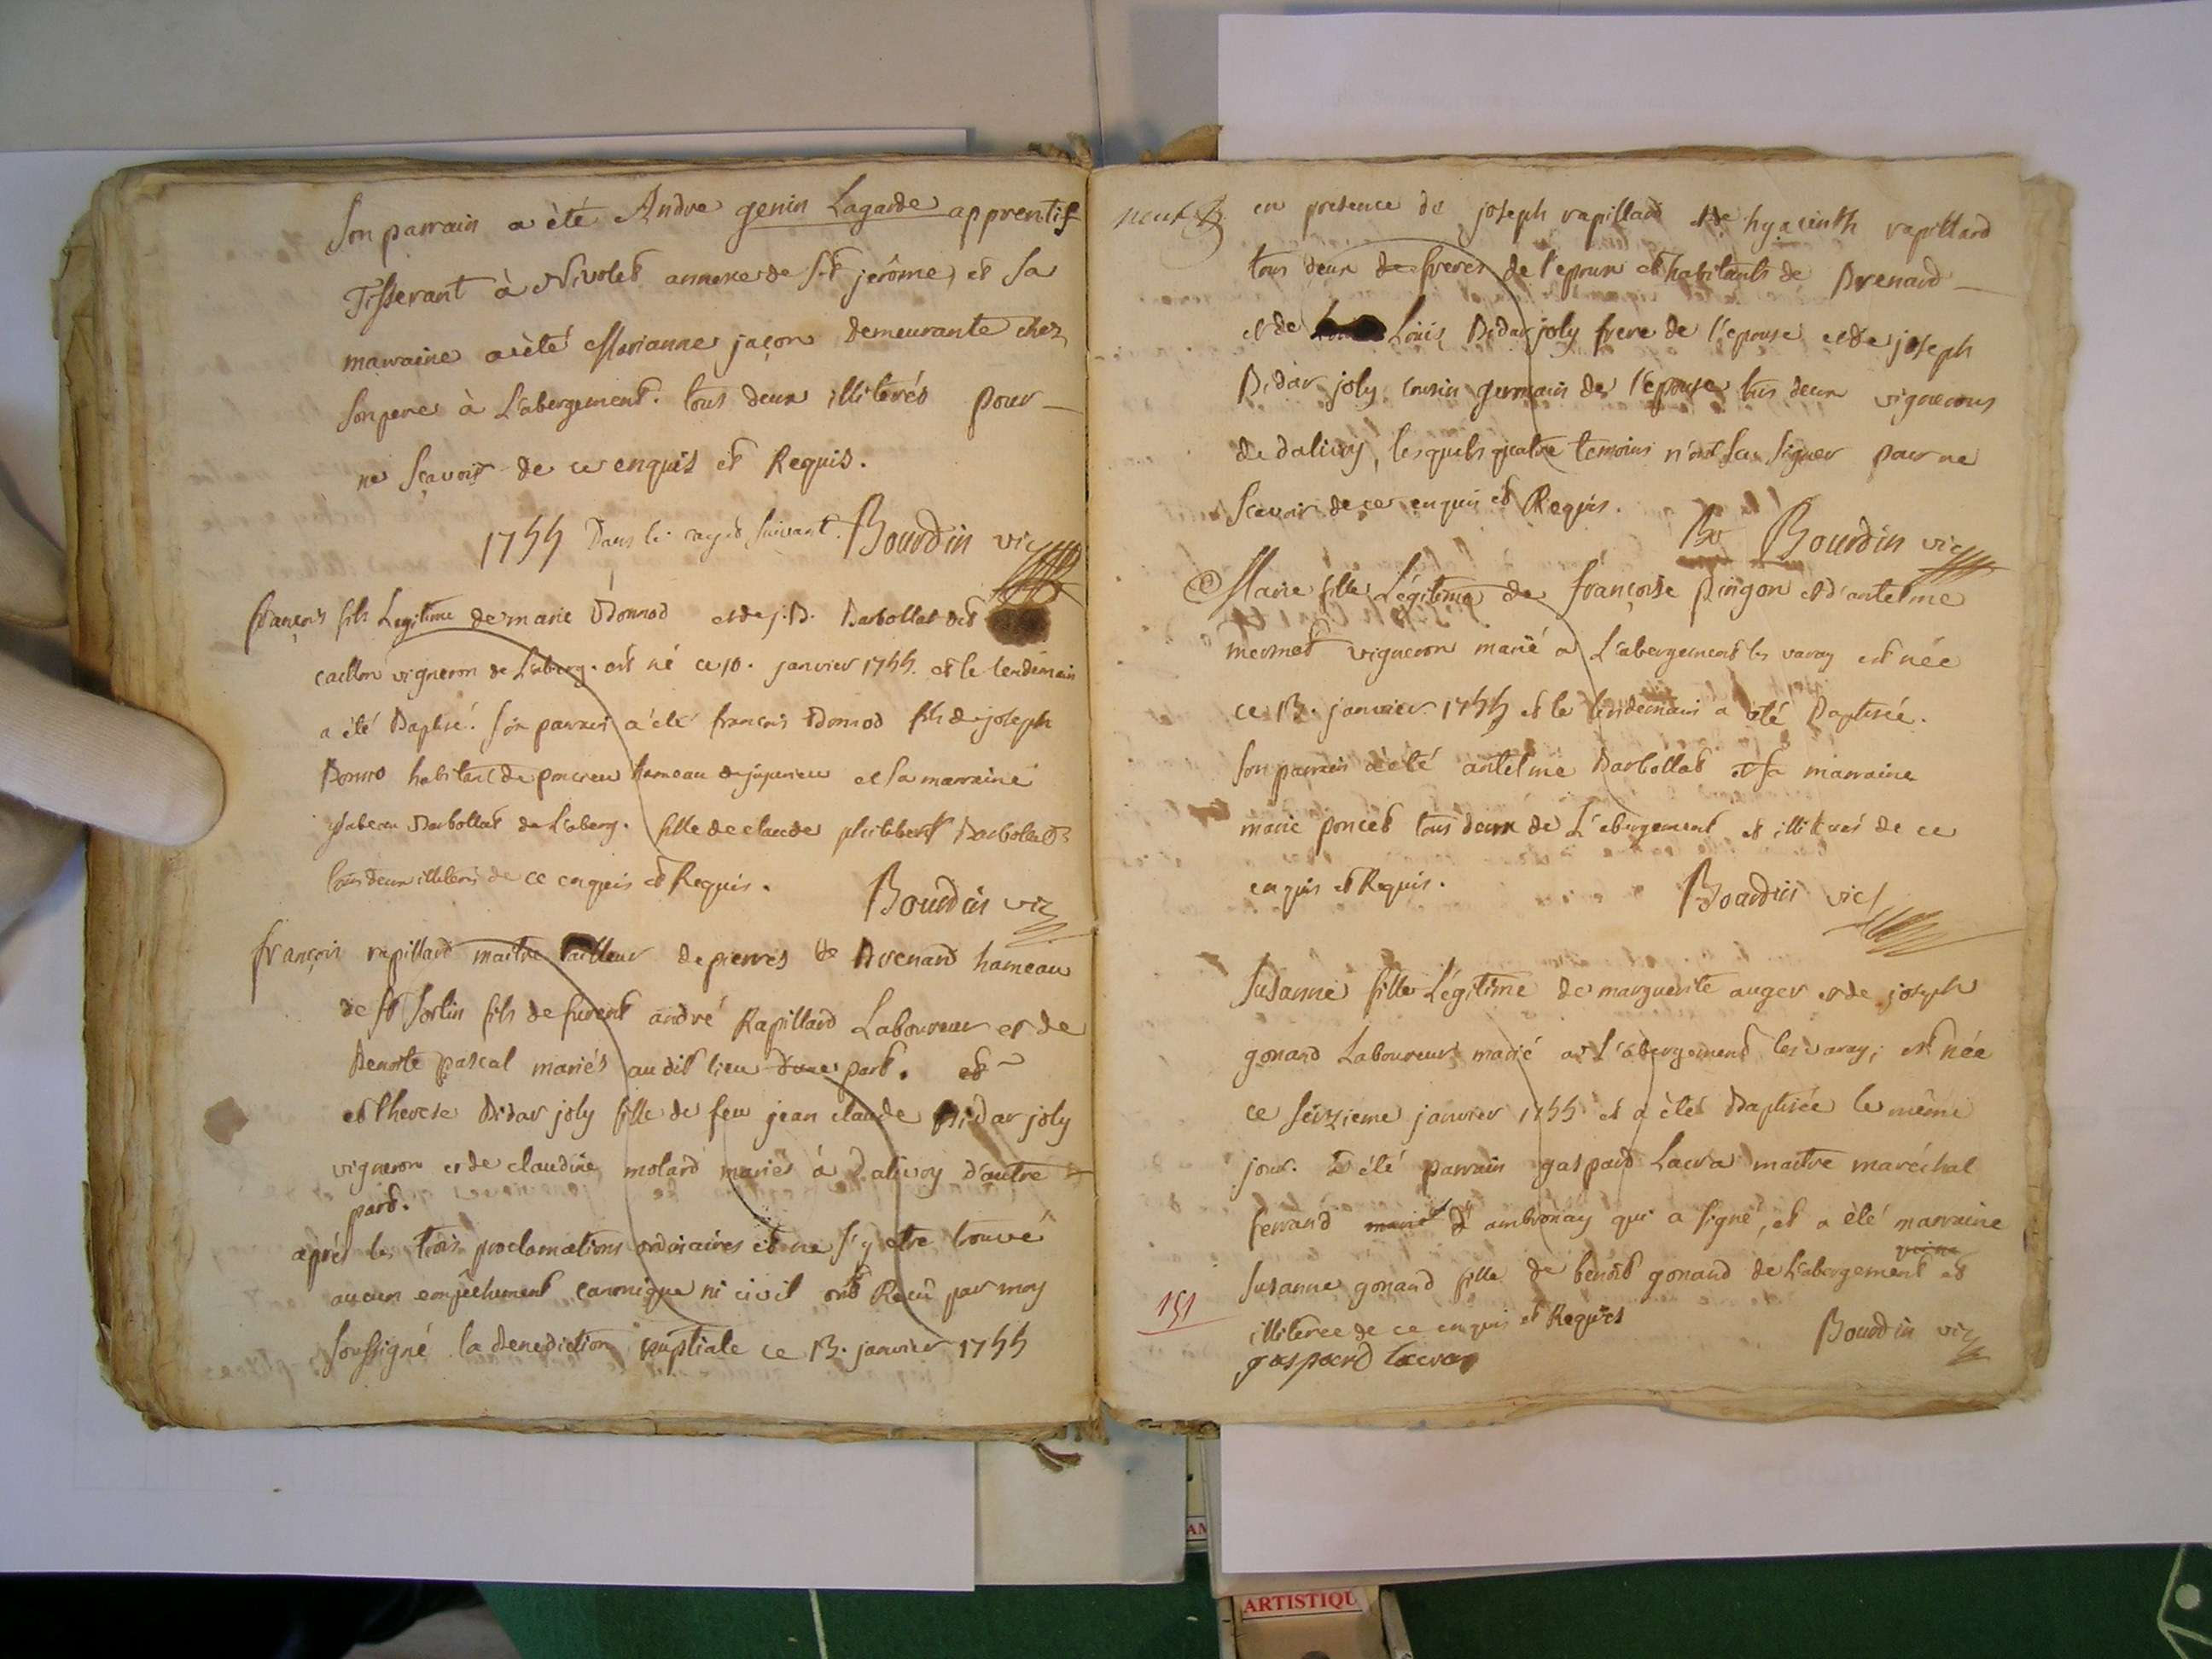 Son parrain a été Andre genin Lagarde apprentif
Tisserant à Nivolet annexe de St jerôme, et sa
marraine a été Marianne jaçon demeurante chez
son pere à L'abergement. tous deux illiterés pour
ne sçavoir de ce enquis et Requis.
1755 Dans le suivant. Bourdin vic
françois fils Legitime de marie Bonnod et de j. B. Barbollat dit
caillon vigneron de L'aberg. est né ce 10. janvier 1755. et le lendemain
a été Baptisé. son parrain a été françois Bonnod fils de joseph
Bonno habitant de poncieu hameau de jujurieu et sa marraine
ysabeau Barbollat de L'aberg. fille de claude philibert Barbollat
tous deux illiterés de ce enquis et Requis.
Bourdin vic
françois rapillard maitre tailleur de pierres de Brenard hameau
de St Sorlin fils de furent andré Rapillard Laboureur et de
Benoite pascal mariés audit lieu d'une part. et
et therese Bidar joly fille de feu jean claude Bidar joly
vigneron et de claudine molard mariés à Dalivoy d'autre
part.
après les trois proclamations ordinaires et ne s'y etre trouvé
aucun empêchement canonique ni civil ont Recû par moy
soussigné la Benediction nuptiale ce 13. janvier 1755
en presence de joseph rapillard et de hyacinth rapillard
tous deux de freres de l'epoux et habitants de Brenard
et de Loüis Bidar joly frere de l'epouse et de joseph
Bidar joly cousin germain de l'epouse tous deux vignerons
de dalivoy, lesquels quatre temoins n'ont sçu signer pour ne
sçavoir de ce enquis et Requis.
Bo Bourdin vic
Marie fille Légitime de françoise pingon et d'antelme
mermet vigneron marié a L'abergement les varey est née
ce 13. janvier 1755 et le lendemain a été Baptisée.
son parrain a été antelme Barbollat et sa marraine
marie poncet tous deux de L'abergement et illiterés de ce
enquis et Requis.
Bourdin vic
Susanne fille Légitime de marguerite auger et de joseph
gonand Laboureur marié a L'abergement les varay, est née
ce seizieme janvier 1755 et a été Baptisée le même
jour. a été parrain gaspard Lacra maitre maréchal
ferrand marié d'ambronay qui a signé, et a été marraine
Susanne gonand fille de benoit gonand de L'abergement et
illiteree de ce enquis et Requis
151
Bourdin vic
gaspard lacra
ARTISTIQU